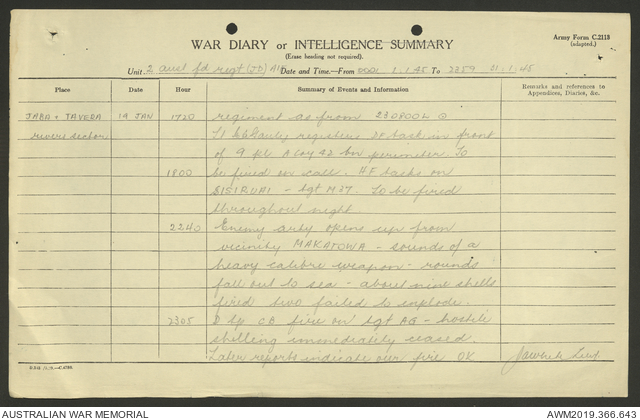 Army Form C.2118
(adapted.)
WAR DIARY or INTELLIGENCE SUMMARY
(Erase heading not required).
Unit 2 Aust fd regt (JD) AIF Date and Time—From 0001 1.1.45 To 2359 31.1.45
Place Date Hour Summary of Events and Information Remarks and references to
Appendices, Diaries, &c.
JABA & TAVERA 19 JAN 1720 regiment as from 230800L
rivers sector Lt registers DF task in front
of 9 pl A Coy 42 bn perimeter. To
1800 be fired on call. HF tasks on
SISIRUAI - tgt M37. To be fired
throughout night
2240 Enemy arty opens up from
vicinity MAKATOWA - sounds of a
heavy calibre weapon - rounds
fall out to sea - about nine shells
fired two failed to explode.
2305 D tp CB fire on tgt AG - hostile
shelling immediately ceased.
Later reports indicate our fire OK
Lieut
AUSTRALIAN WAR MEMORIAL
AWM2019.366.643